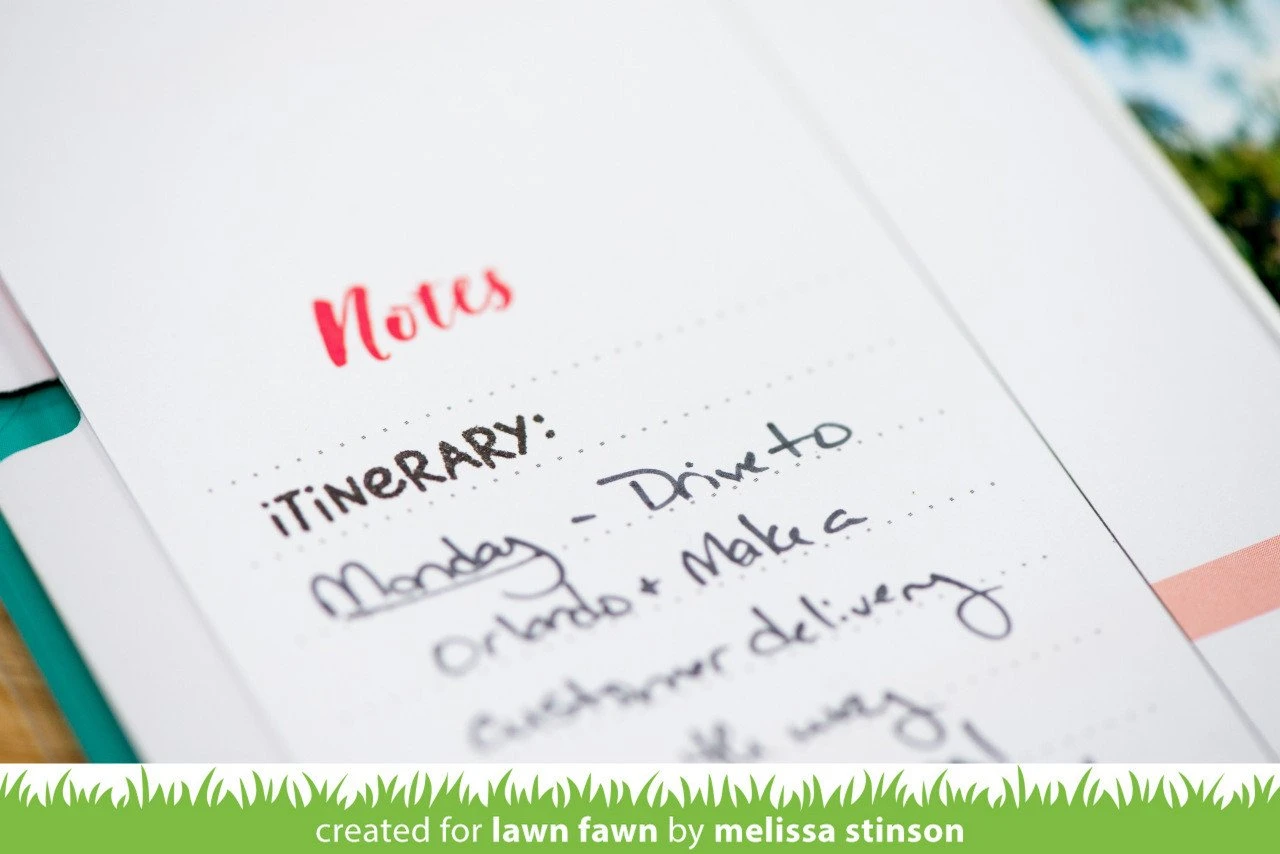 Notes
iTiNeRARY:
Monday - Drive to
Orlando + Make a
customer delivery
the way
created for lawn fawn by melissa stinson